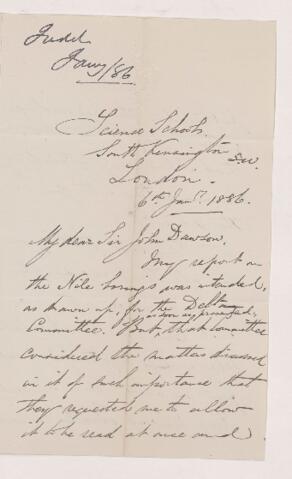 Judd
Jany/86
Science Schools.
South Kensington S.W.
London.
6th Jany. 1886.
My dear Sir John Dawson,
My report on
the Nile borings was intended,
as drawn up, for the Delta
Committee. But, that Committee
considered the matters discussed
in it of such importance that
they requested me to allow
it to be read at once and